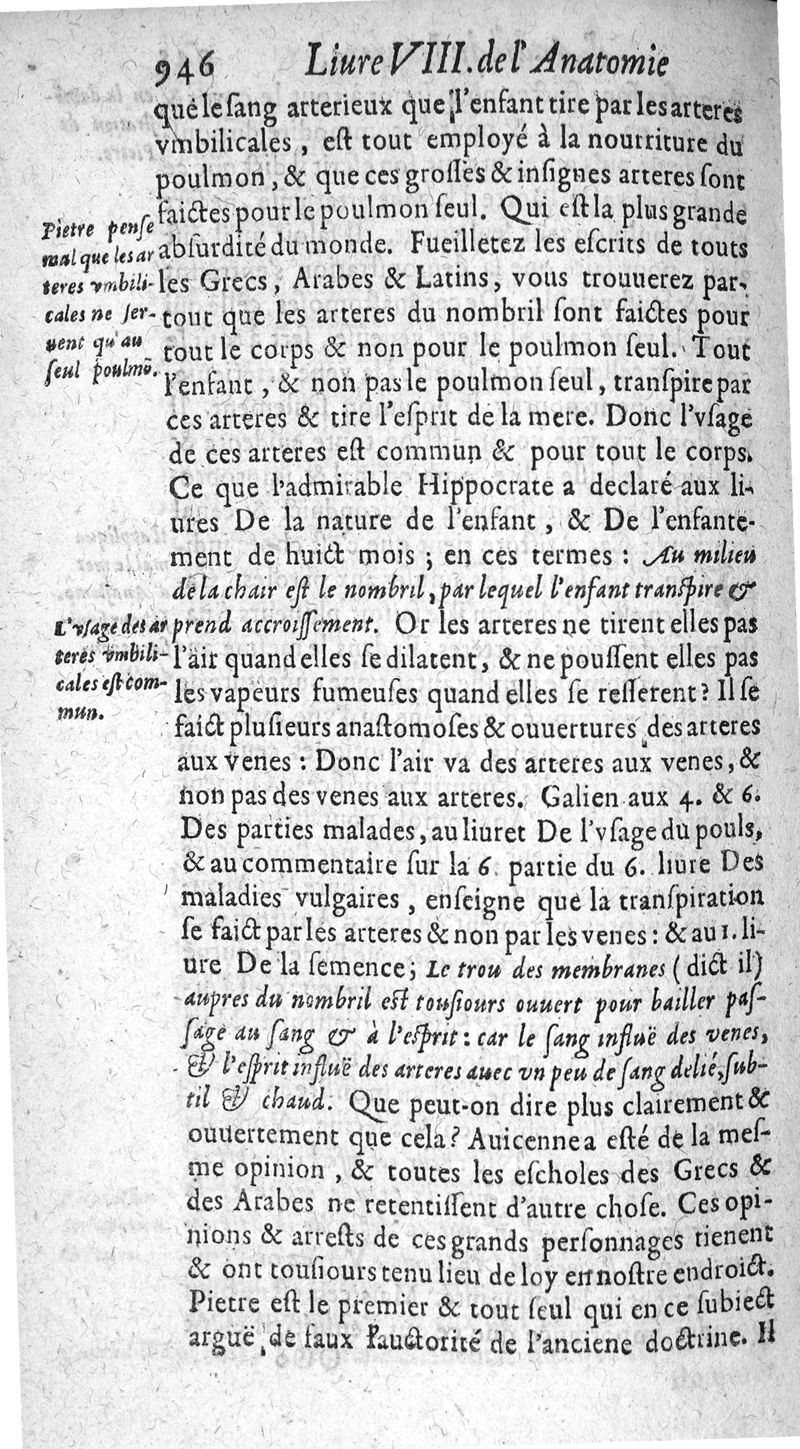 946 Liure VIII. de l'Anatomie
que le ſang arterieux que l'enfant tire par les arteres
vmbilicales, eſt tout employé à la nourriture du
poulmon, & que ces groſſes & inſignes arteres ſont
faictes pour le poulmon ſeul. Qui eſt la plus grande
abſurdité du monde. Fueilletez les eſcrits de touts
les Grecs, Arabes & Latins, vous trouuerez par-
tout que les arteres du nombril ſont faictes pour
tout le corps & non pour le poulmon ſeul. Tout
l'enfant, & non pas le poulmon ſeul, tranſpire par
ces arteres & tire l'eſprit de la mere. Donc l'vſage
de ces arteres eſt commun & pour tout le corps.
Ce que l'admirable Hippocrate a declaré aux li-
ures De la nature de l'enfant, & De l'enfante-
ment de huict mois; en ces termes: Au milieu
de la chair eſt le nombril, par lequel l'enfant tranſpire &
prend accroiſſement. Or les arteres ne tirent elles pas
l'air quand elles ſe dilatent, & ne pouſſent elles pas
les vapeurs fumeuſes quand elles ſe reſſerent? Il ſe
faict pluſieurs anaſtomoſes & ouuertures des arteres
aux venes: Donc l'air va des arteres aux venes, &
non pas des venes aux arteres. Galien aux 4. & 6.
Des parties malades, au liuret De l'vſage du pouls,
& au commentaire ſur la 6. partie du 6. liure Des
maladies vulgaires, enſeigne que la tranſpiration
ſe faict par les arteres & non par les venes: & au 1. li-
ure De la ſemence; Le trou des membranes (dict il)
aupres du nombril eſt touſiours ouuert pour bailler paſ-
ſage au ſang & à l'eſprit: car le ſang influë des venes,
& l'eſprit influë des arteres auec vn peu de ſang delié, ſub-
til & chaud. Que peut-on dire plus clairement &
ouuertement que cela? Auicenne a eſté de la meſ-
me opinion, & toutes les eſcholes des Grecs &
des Arabes ne retentiſſent d'autre choſe. Ces opi-
nions & arreſts de ces grands perſonnages tienent
& ont touſiours tenu lieu de loy en noſtre endroict.
Pietre eſt le premier & tout ſeul qui en ce ſubiect
arguë de faux l'auctorité de l'anciene doctrine. Il
Pietre penſe
mal que les ar
teres vmbili-
cales ne ſer-
uent qu'au
ſeul poulmō.
L'vſage des ar
teres vmbili-
cales eſt com-
mun.